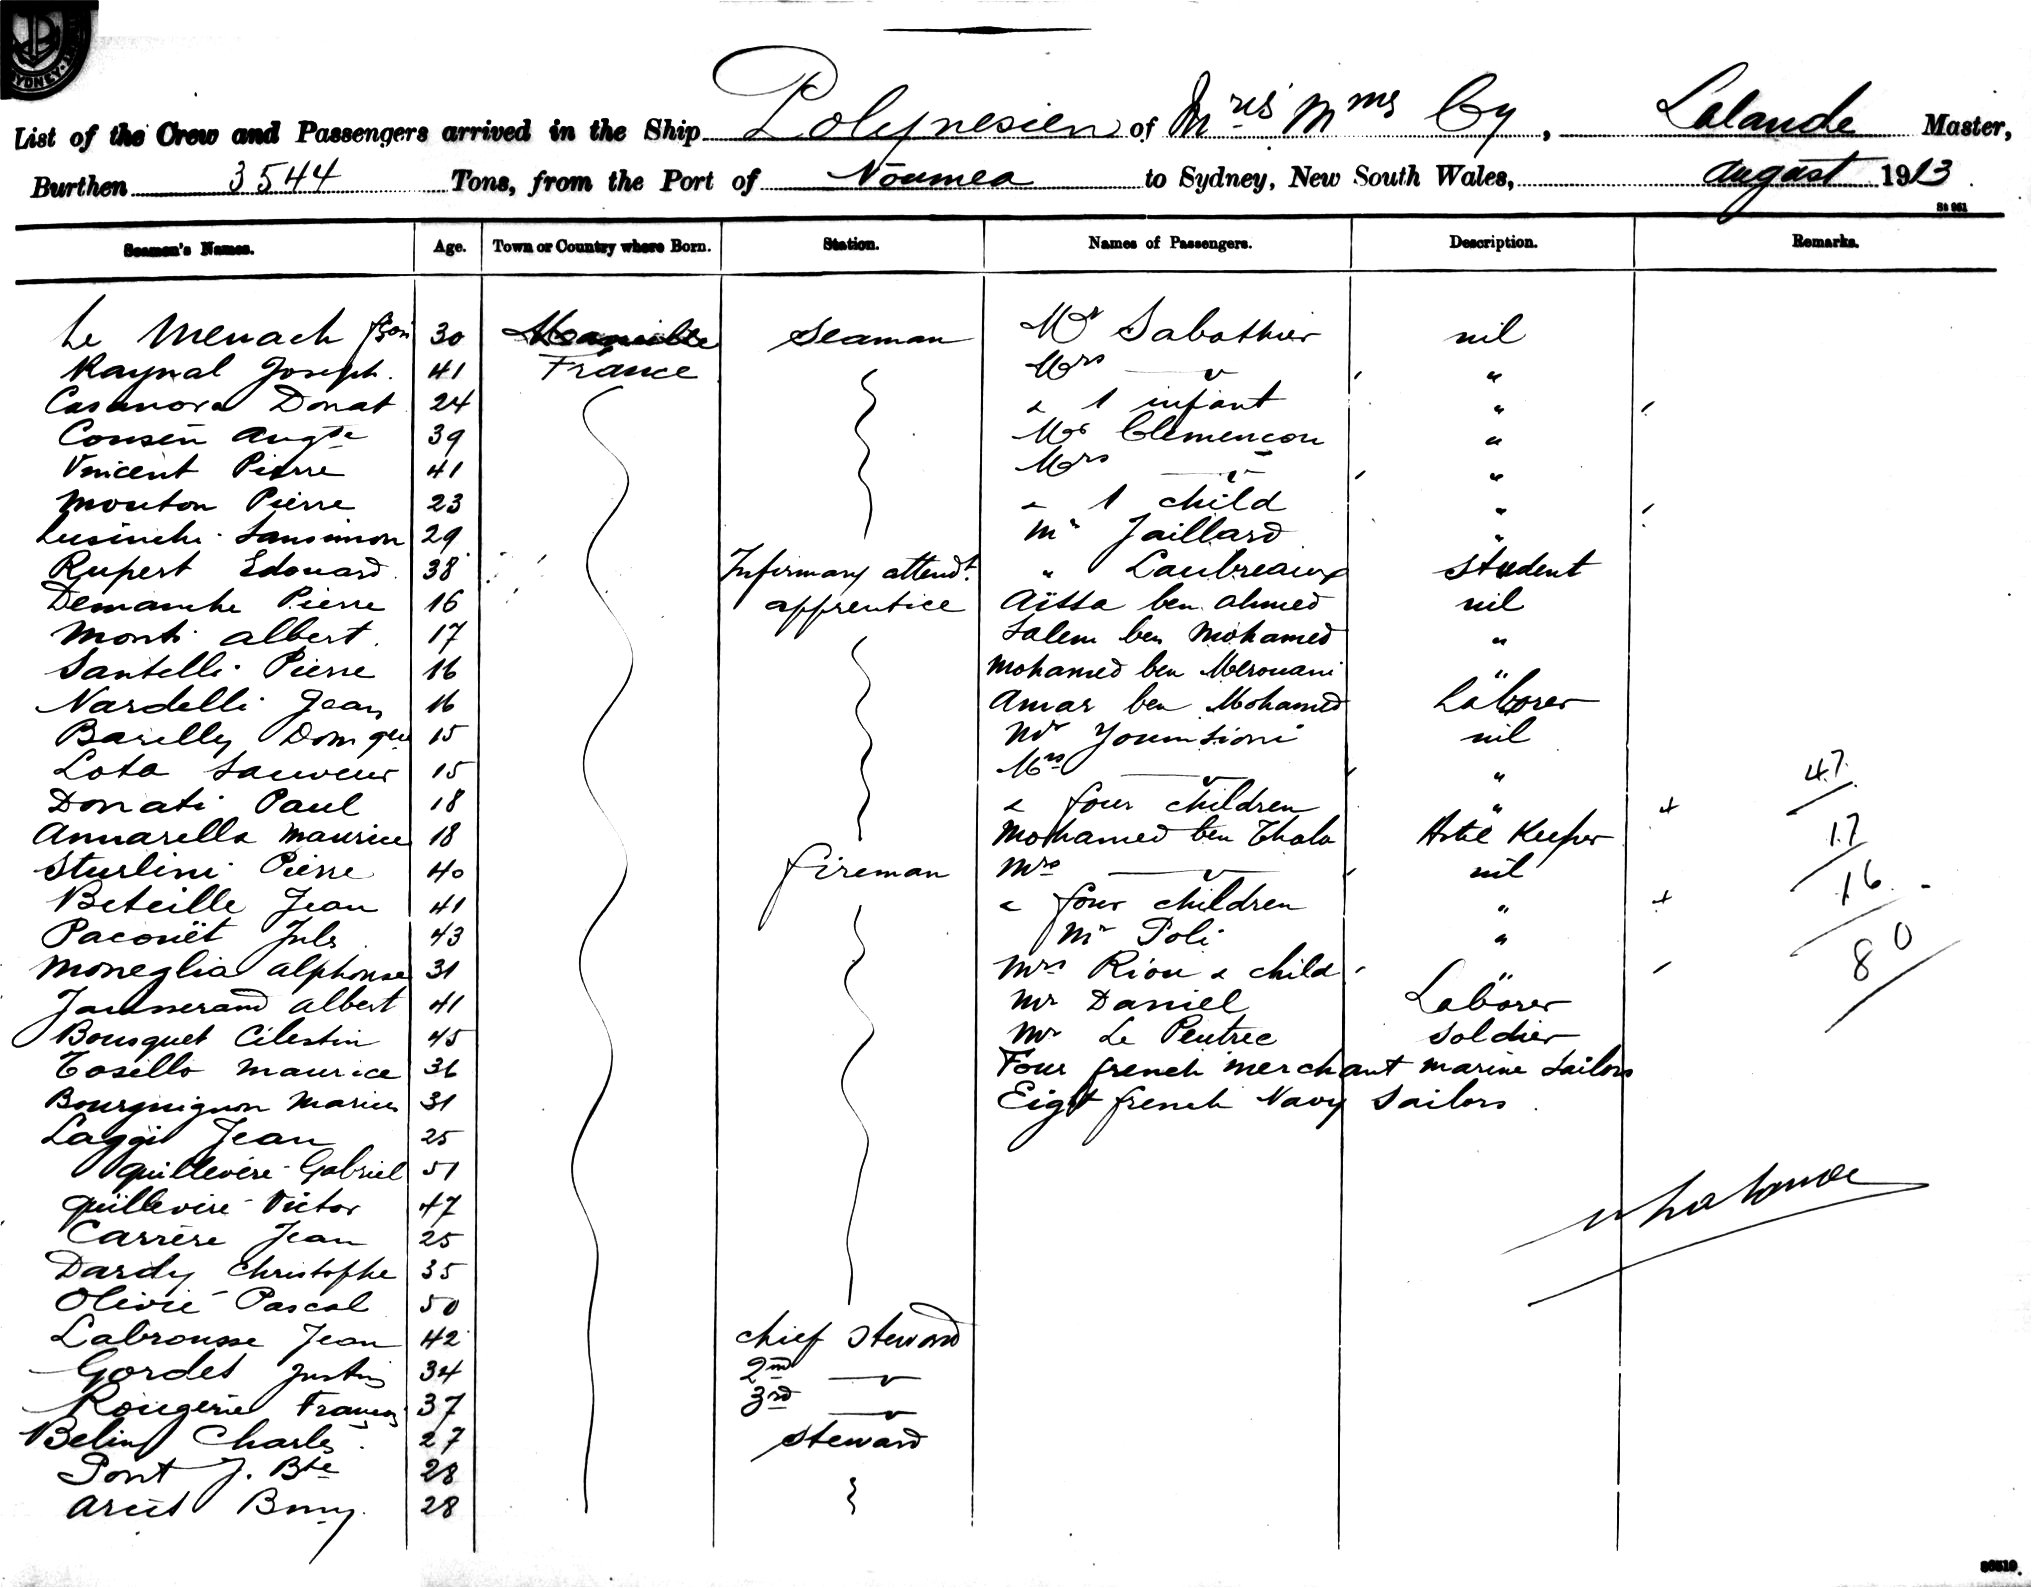 SYDNEY
List of the Crew and Passengers arrived in the Ship Polynesien of Mris Mmes Cy, Lalande Master,
Burthen 3544 Tons, from the Port of Nouméa to Sydney, New South Wales, August 1913
Seamen's Names. Age. Town or Country where Born. Station. Names of Passengers. Description. Remarks.
Le Menach 30 Seaman Mr Sabathier nil
Raynal Joseph. 41 France Mrs — " — "
Casanova Donat 24 & 1 infant "
Consen Augte 39 Mr Clemencon "
Vincent Pierre 41 Mrs — " — "
Mouton Pierre 23 & 1 child "
29 Mr Jaillard "
Rupert Edouard 38 Infirmary attendt. " Laubreaux Student
Demanche Pierre 16 apprentice Aïssa ben Ahmed nil
Monti Albert. 17 Salem ben Mohamed "
Santelli Pierre 16 Mohamed ben Merouani "
Nardelli Jean 16 Amar ben Mohamed Laborer
Barelly Domque 15 Mr nil
Lota Sauveur 15 Mrs — " — "
Donati Paul 18 & four children " + 47
Annarella Maurice 18 Mohamed ben Thala Hotel Keeper 17
Sturlini Pierre 40 fireman Mrs — " — nil
Beteille Jean 41 & four children " + 16
Paconët Jules 43 Mr Poli " 80
Moneglia Alphonse 31 Mrs Riou & child
Jausserand Albert 41 Mr Daniel Laborer
Bousquet Célestin 45 Mr Le Peutrec Soldier
Tosello Maurice 36 Four french merchant marine Sailors
Bourguignon Marius 31 Eight french Navy Sailors.
Laggi Jean 25
Quillevére Gabriel 51
Quillevére Victor 47
Carrère Jean 25
Dardy Christophe 35
Olivié Pascal 50
Labrousse Jean 42 chief Steward
Gordet Justin 34 2nd — " —
Rougerie François 37 3rd — " —
Belin Charles. 27 Steward
Pont J. Bte 28
28
Lalande